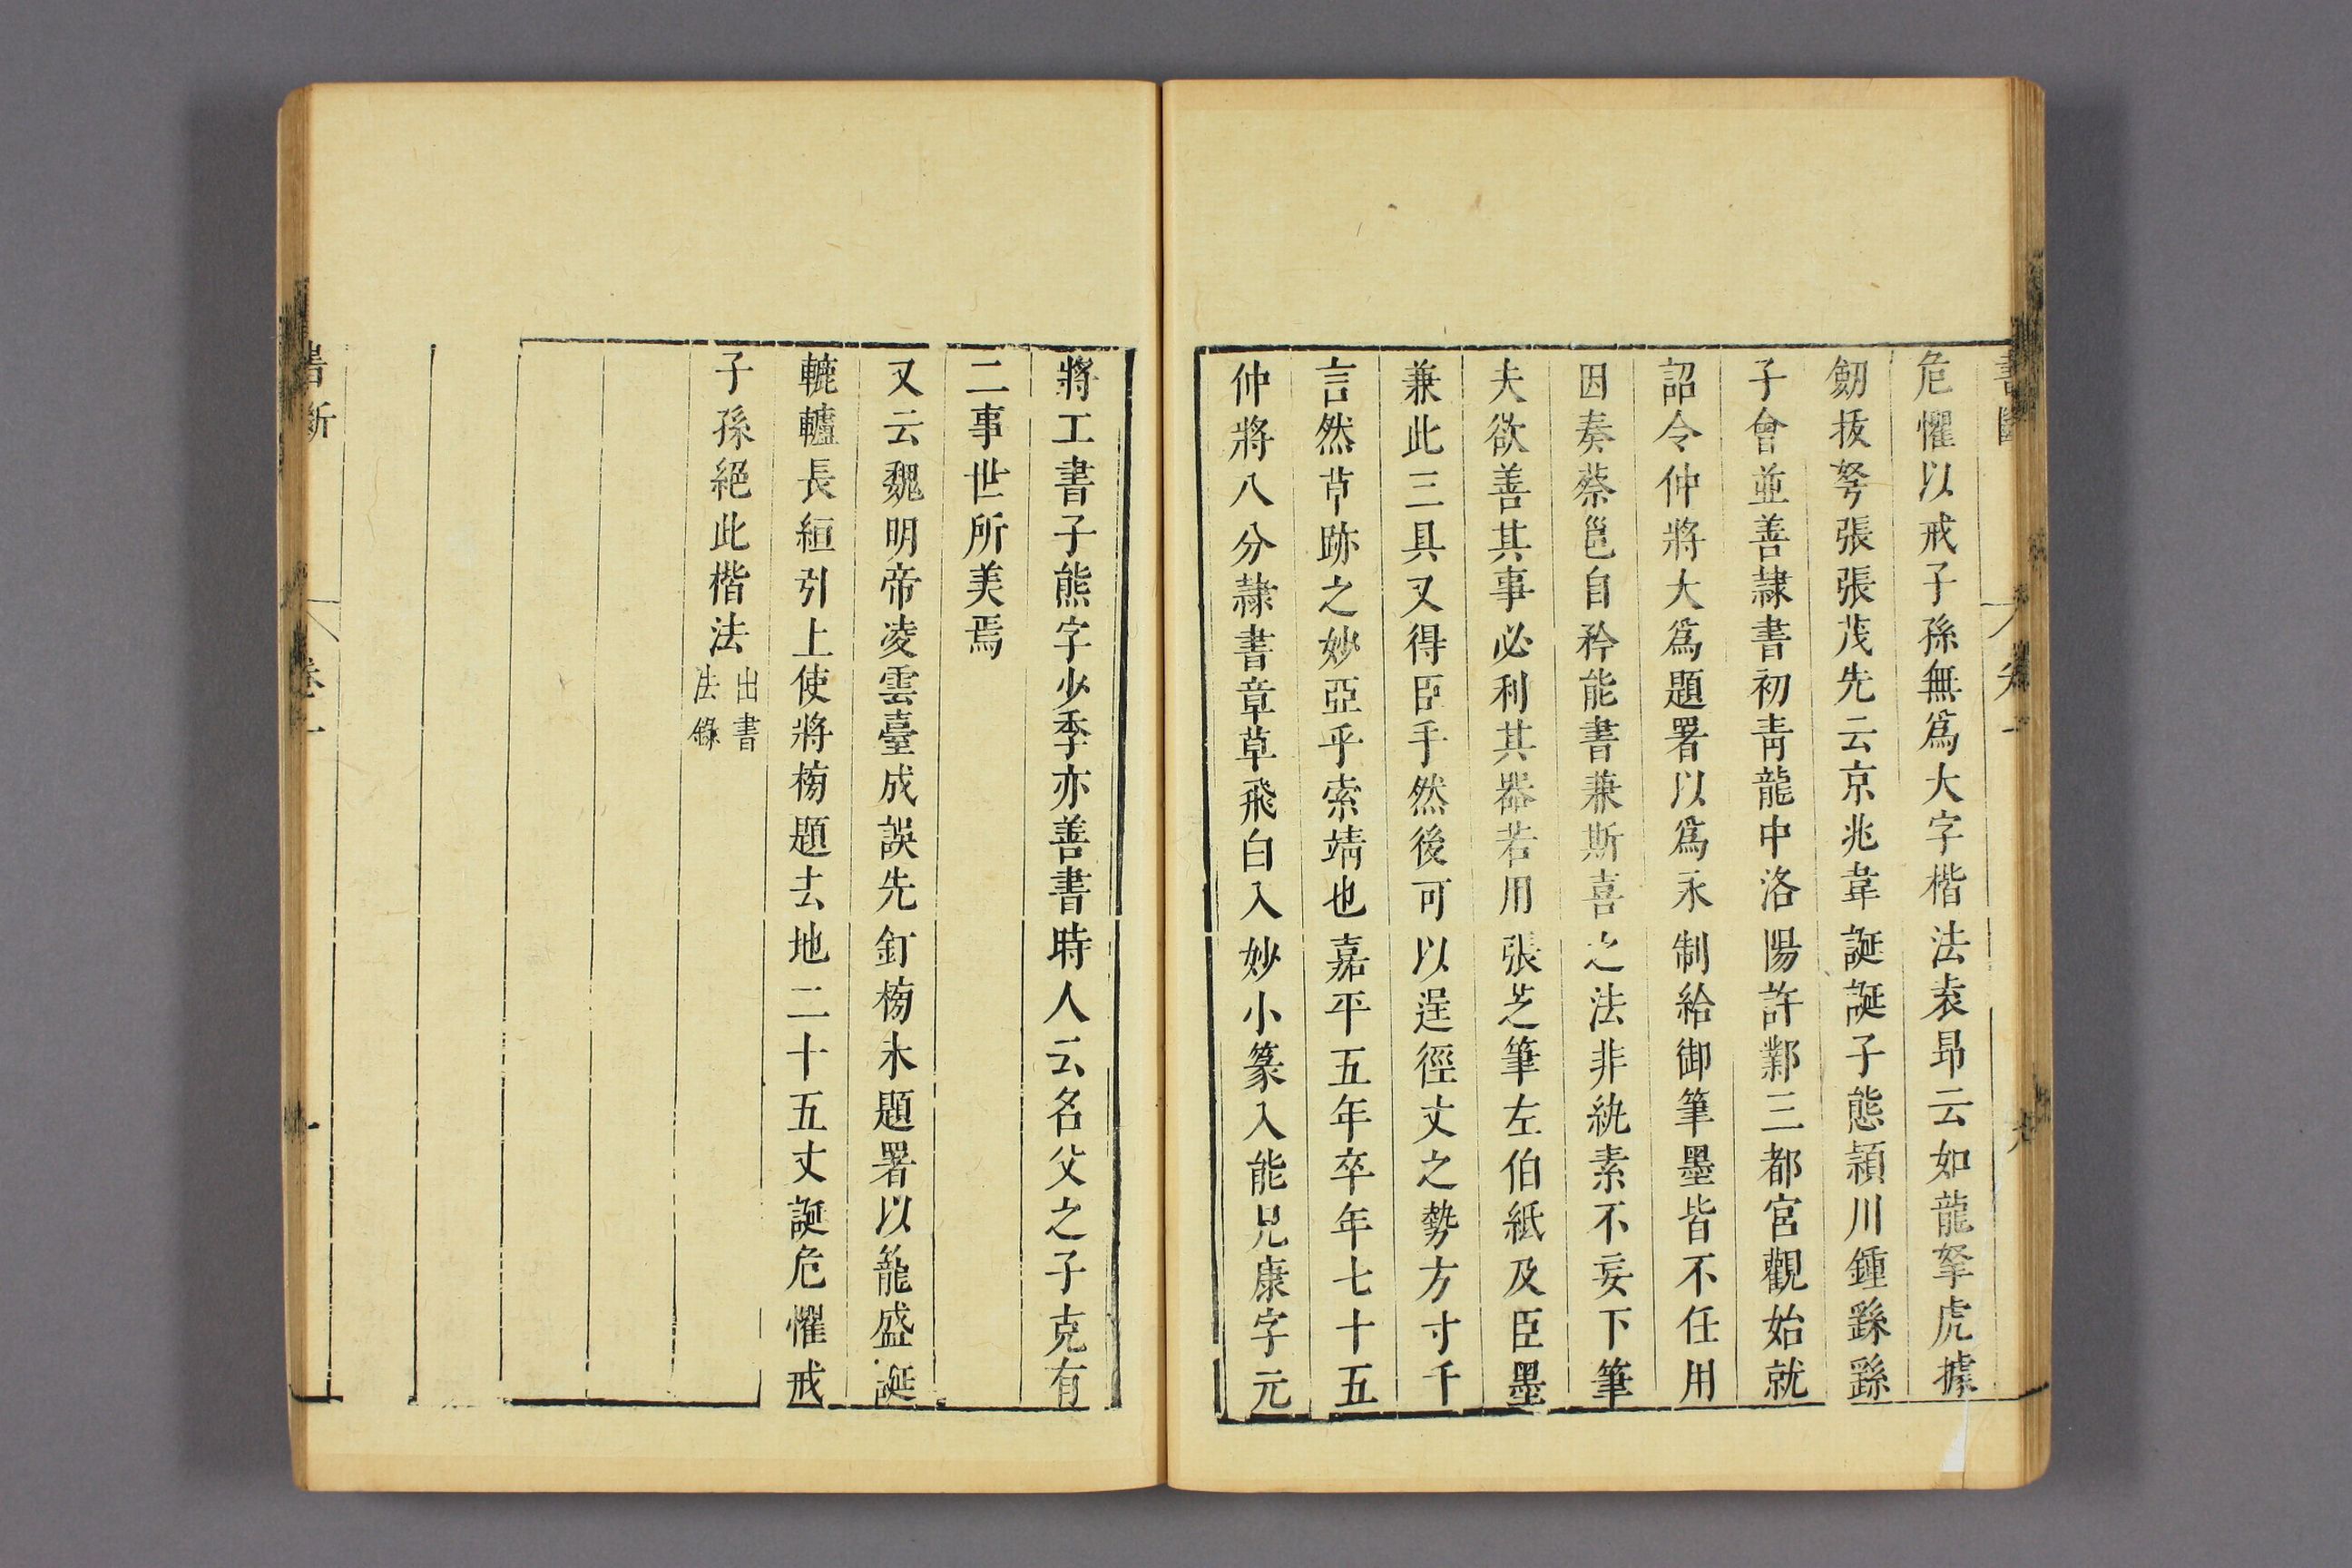 危懼以戒子孫無爲大字楷法袁昂云如龍拏虎據
劒拔弩張張茂先云京兆韋誕誕子態穎川鍾繇繇
子會並善隷書初青龍中洛陽許鄴三都宮觀始就
詔令仲將大爲題署以爲永制給御筆墨皆不任用
因奏蔡邕自矜能書兼斯喜之法非紈素不妄下筆
夫欲善其事必利其器若用張芝筆左伯紙及臣墨
兼此三具又得臣手然後可以逞徑丈之勢方寸千
言然草跡之妙亞乎索靖也嘉平五年卒年七十五
仲將八分隷書章草飛白入妙小篆入能兄康字元
將工書子熊字少季亦善書時人云名父之子克有
二事世所美焉
又云魏明帝凌雲臺成誤先釘榜木題署以籠盛誕
轆轤長絙引上使將榜題去地二十五丈誕危懼戒
子孫絕此楷法出書
法錄
書斷 卷一